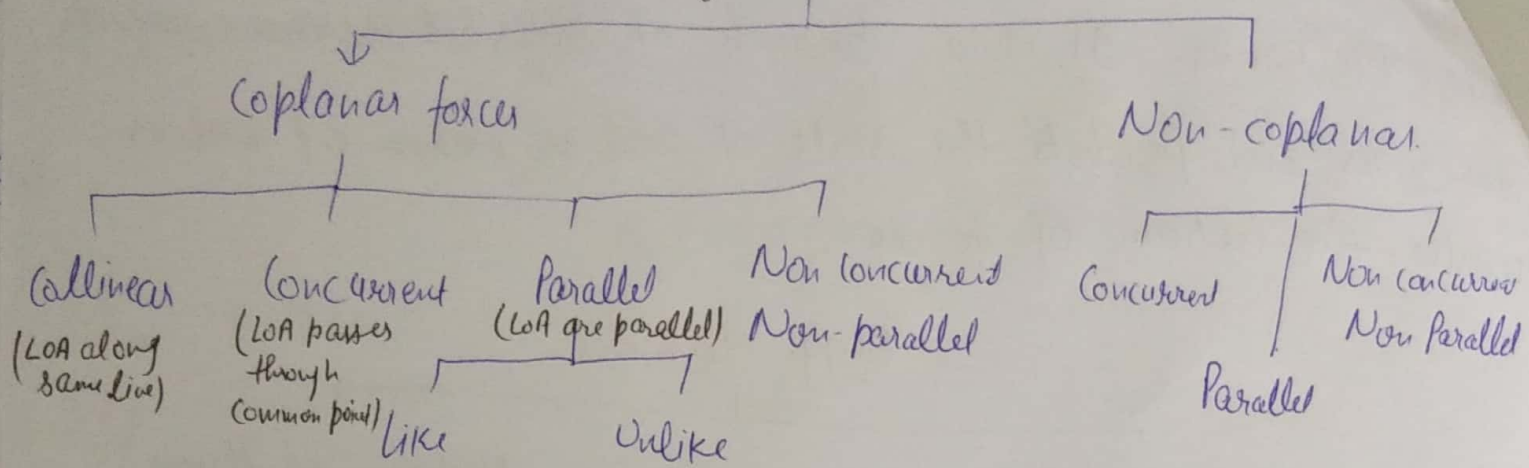 Coplanar forces
Non-coplanar.
Collinear
(LOA along
same line)
Concurrent
(LOA passes
through
common point)
Parallel
(LOA are parallel)
Like
Unlike
Non Concurrent
Non-parallel
Concurrent
Parallel
Non Concurrent
Non Parallel